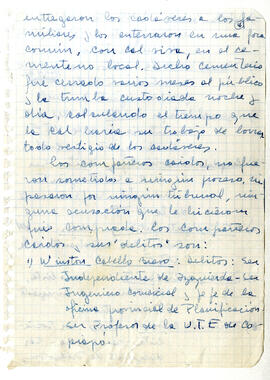 entregaron los cadáveres a los fa-
miliares y los enterraron en una fosa
común, con cal viva, en el ce-
menterio local. Dicho cementerio
fué cerrado varios meses al público
y la tumba custodiada noche y
día, calculando el tiempo que
la cal haría su trabajo de borrar
todo vestigio de los cadáveres.
Los compañeros caídos, no fue
ron sometidos a ningún proceso, no
pasaron por ningún tribunal, nin
guna acusación que le hicieron
fué comprobada. los compañeros
caídos y sus "delitos" son:
1) Winston Cabello Bravo: Delitos: Ser
Independiente de Izquierda - Ser
Ingeniero Comercial y jefe de la
Oficina provincial de Planificación
ser Profesor de la U.T.E de Co
piapó.